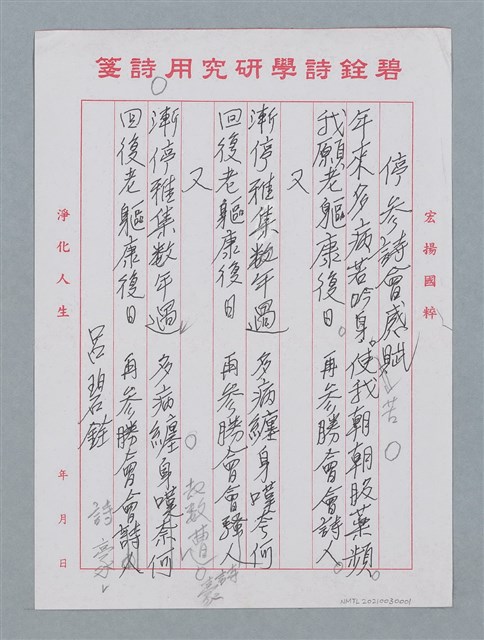 碧銓詩學研究用詩箋
宏揚國粹
淨化人生
停參詩會感賦
年來多病苦吟身。使我朝朝服藥頻。
苦
我願老軀康復日。再參勝會會詩人。
又
漸停雅集数年過 多病纏身嘆奈何
回復老軀康復日 再參勝會會騷人
詩豪
又
漸停雅集数年過 多病纏身嘆奈何
回復老軀康復日 再參勝會會詩人
詩豪
呂碧銓
年月日
NMTL20210030001